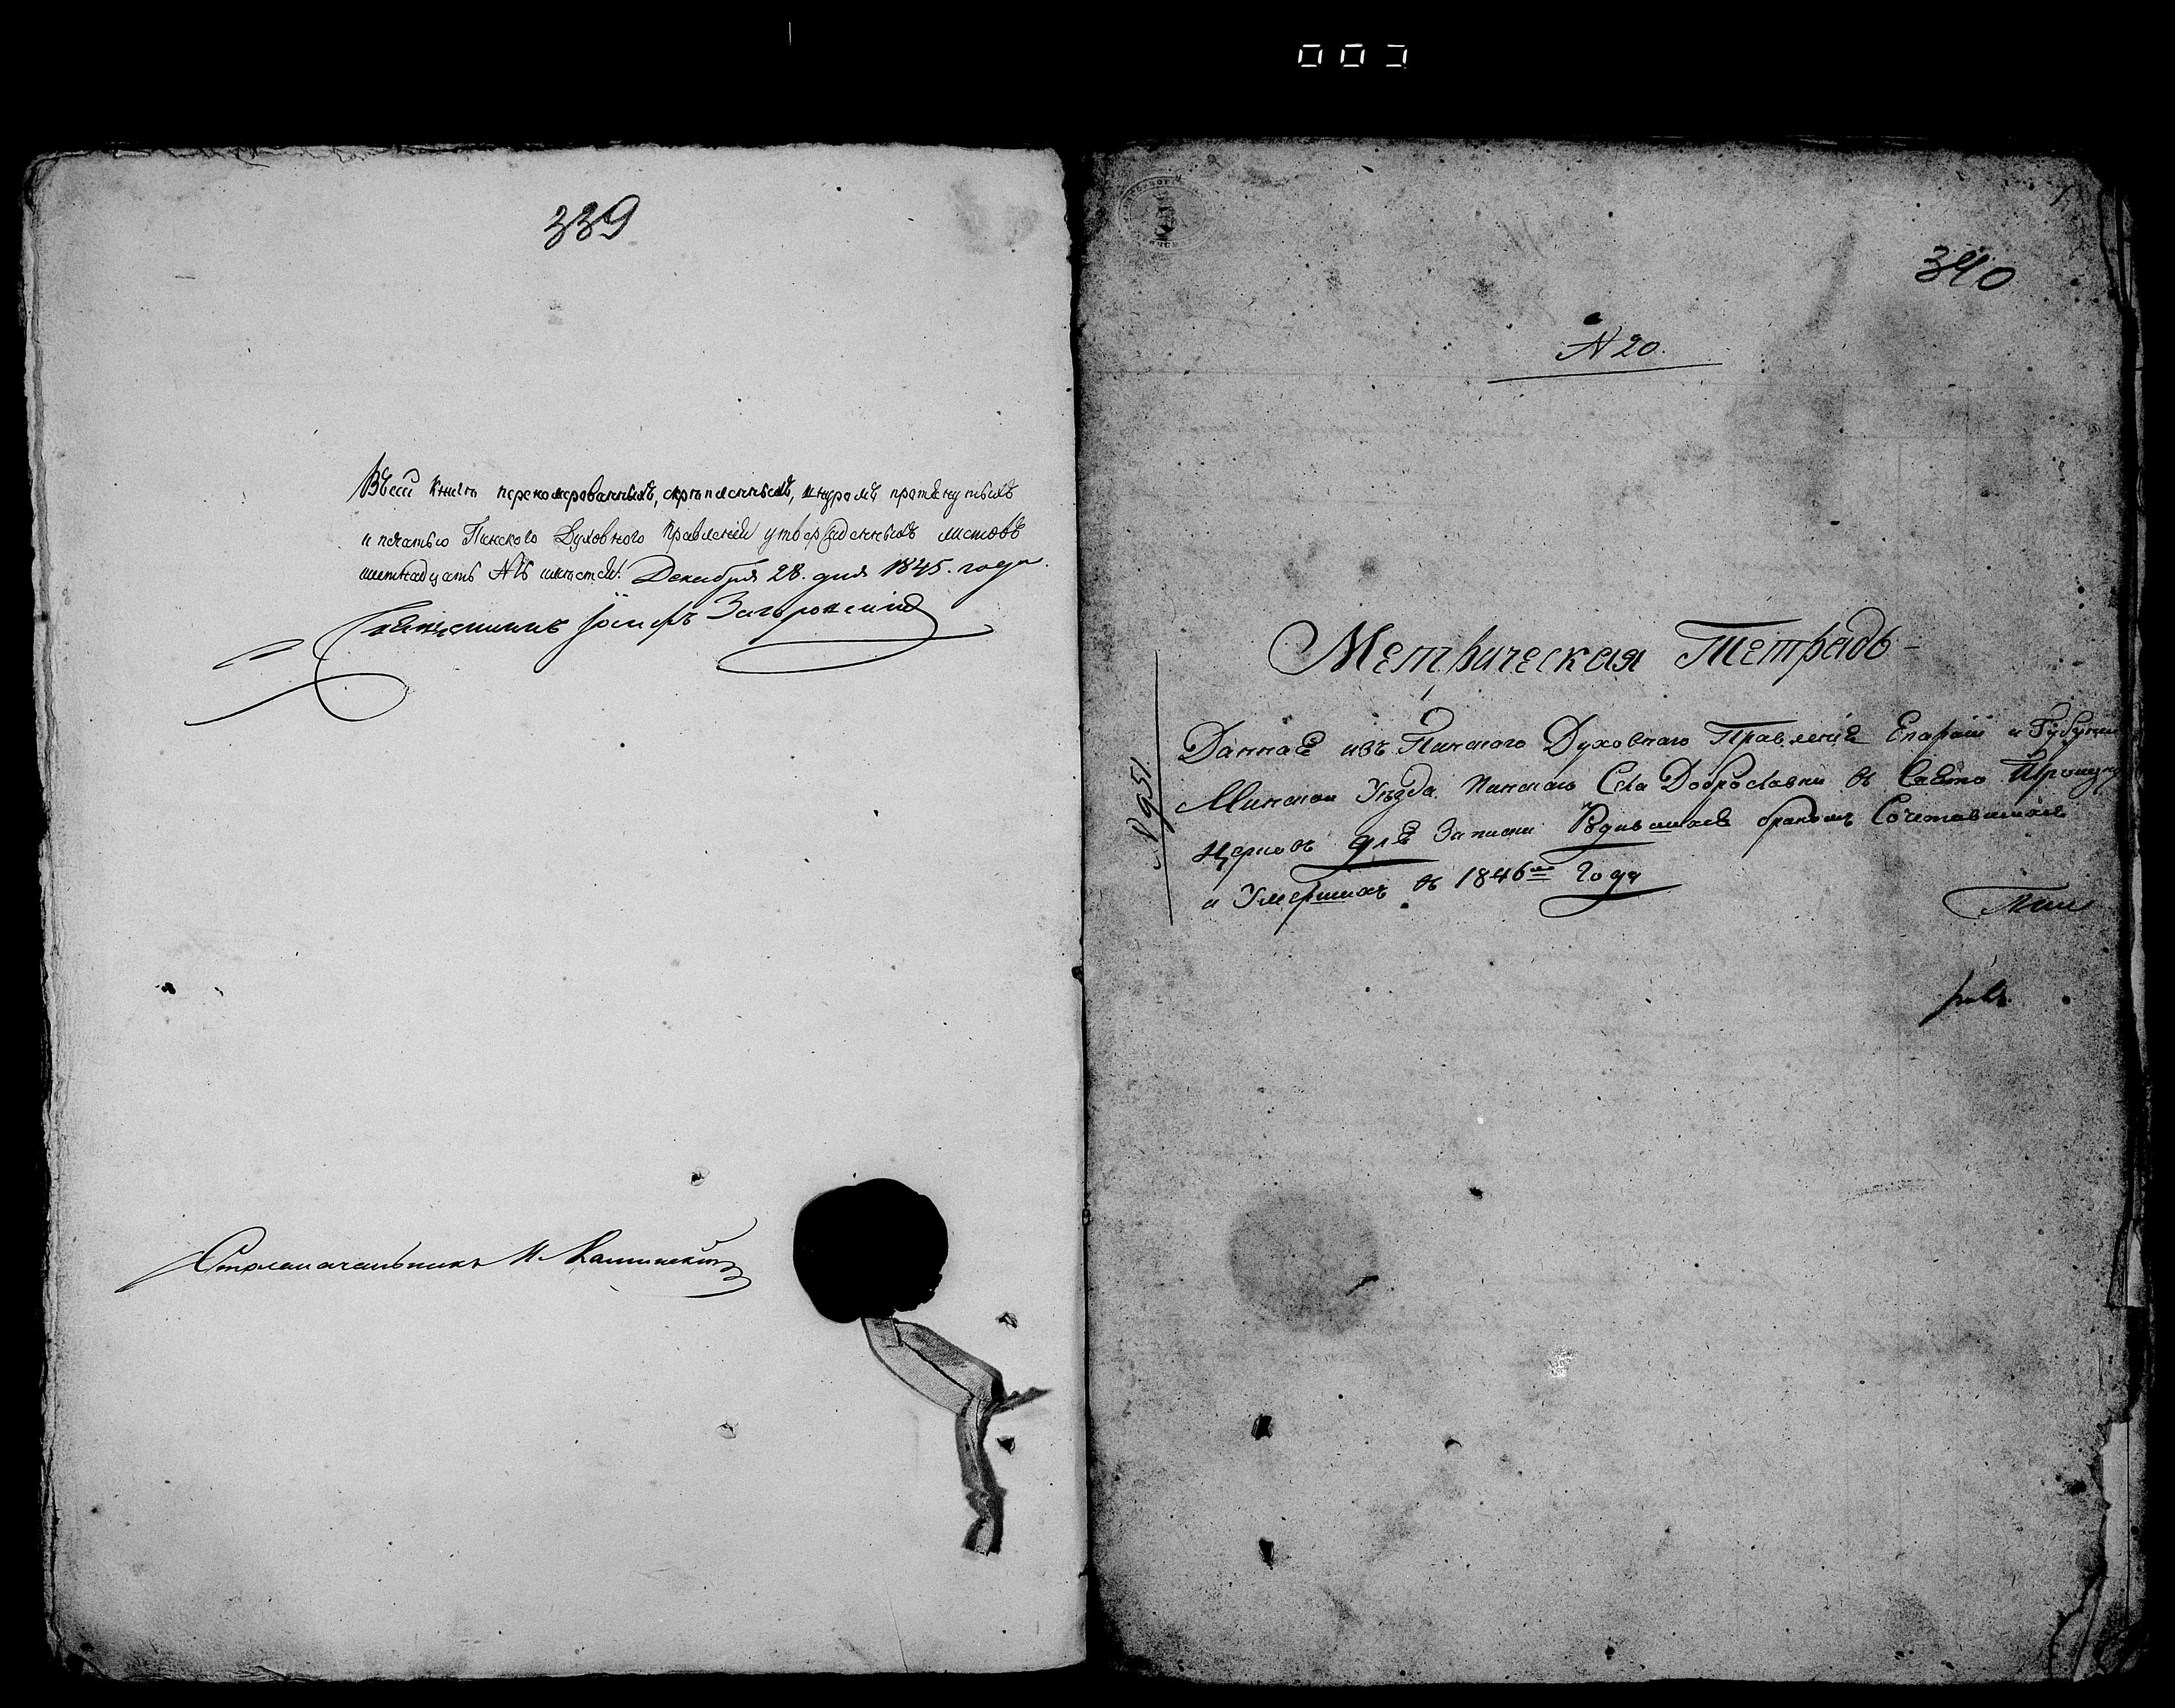 339
Въсей книгѣ перенομерованныхъ, скрѣпленныхъ, шнуромъ протянутыхъ
и печатью Пинского Духовного Правленія утвержденныхъ листовъ
Декабря 28. дня 1845. года.
Священникъ Іосифъ
Столоначальникъ
340
N 20.
Метрическая Тетрадь
Данная изъ Пинского Духовнаго Правленія Епархіи и
Минской Уѣзда Пинскаго Села Доброславки въ Свято Троицку
церковь для Записки Родившихся бракомъ Сочетавшихся
и Умершихъ въ 1846 года
N 951.